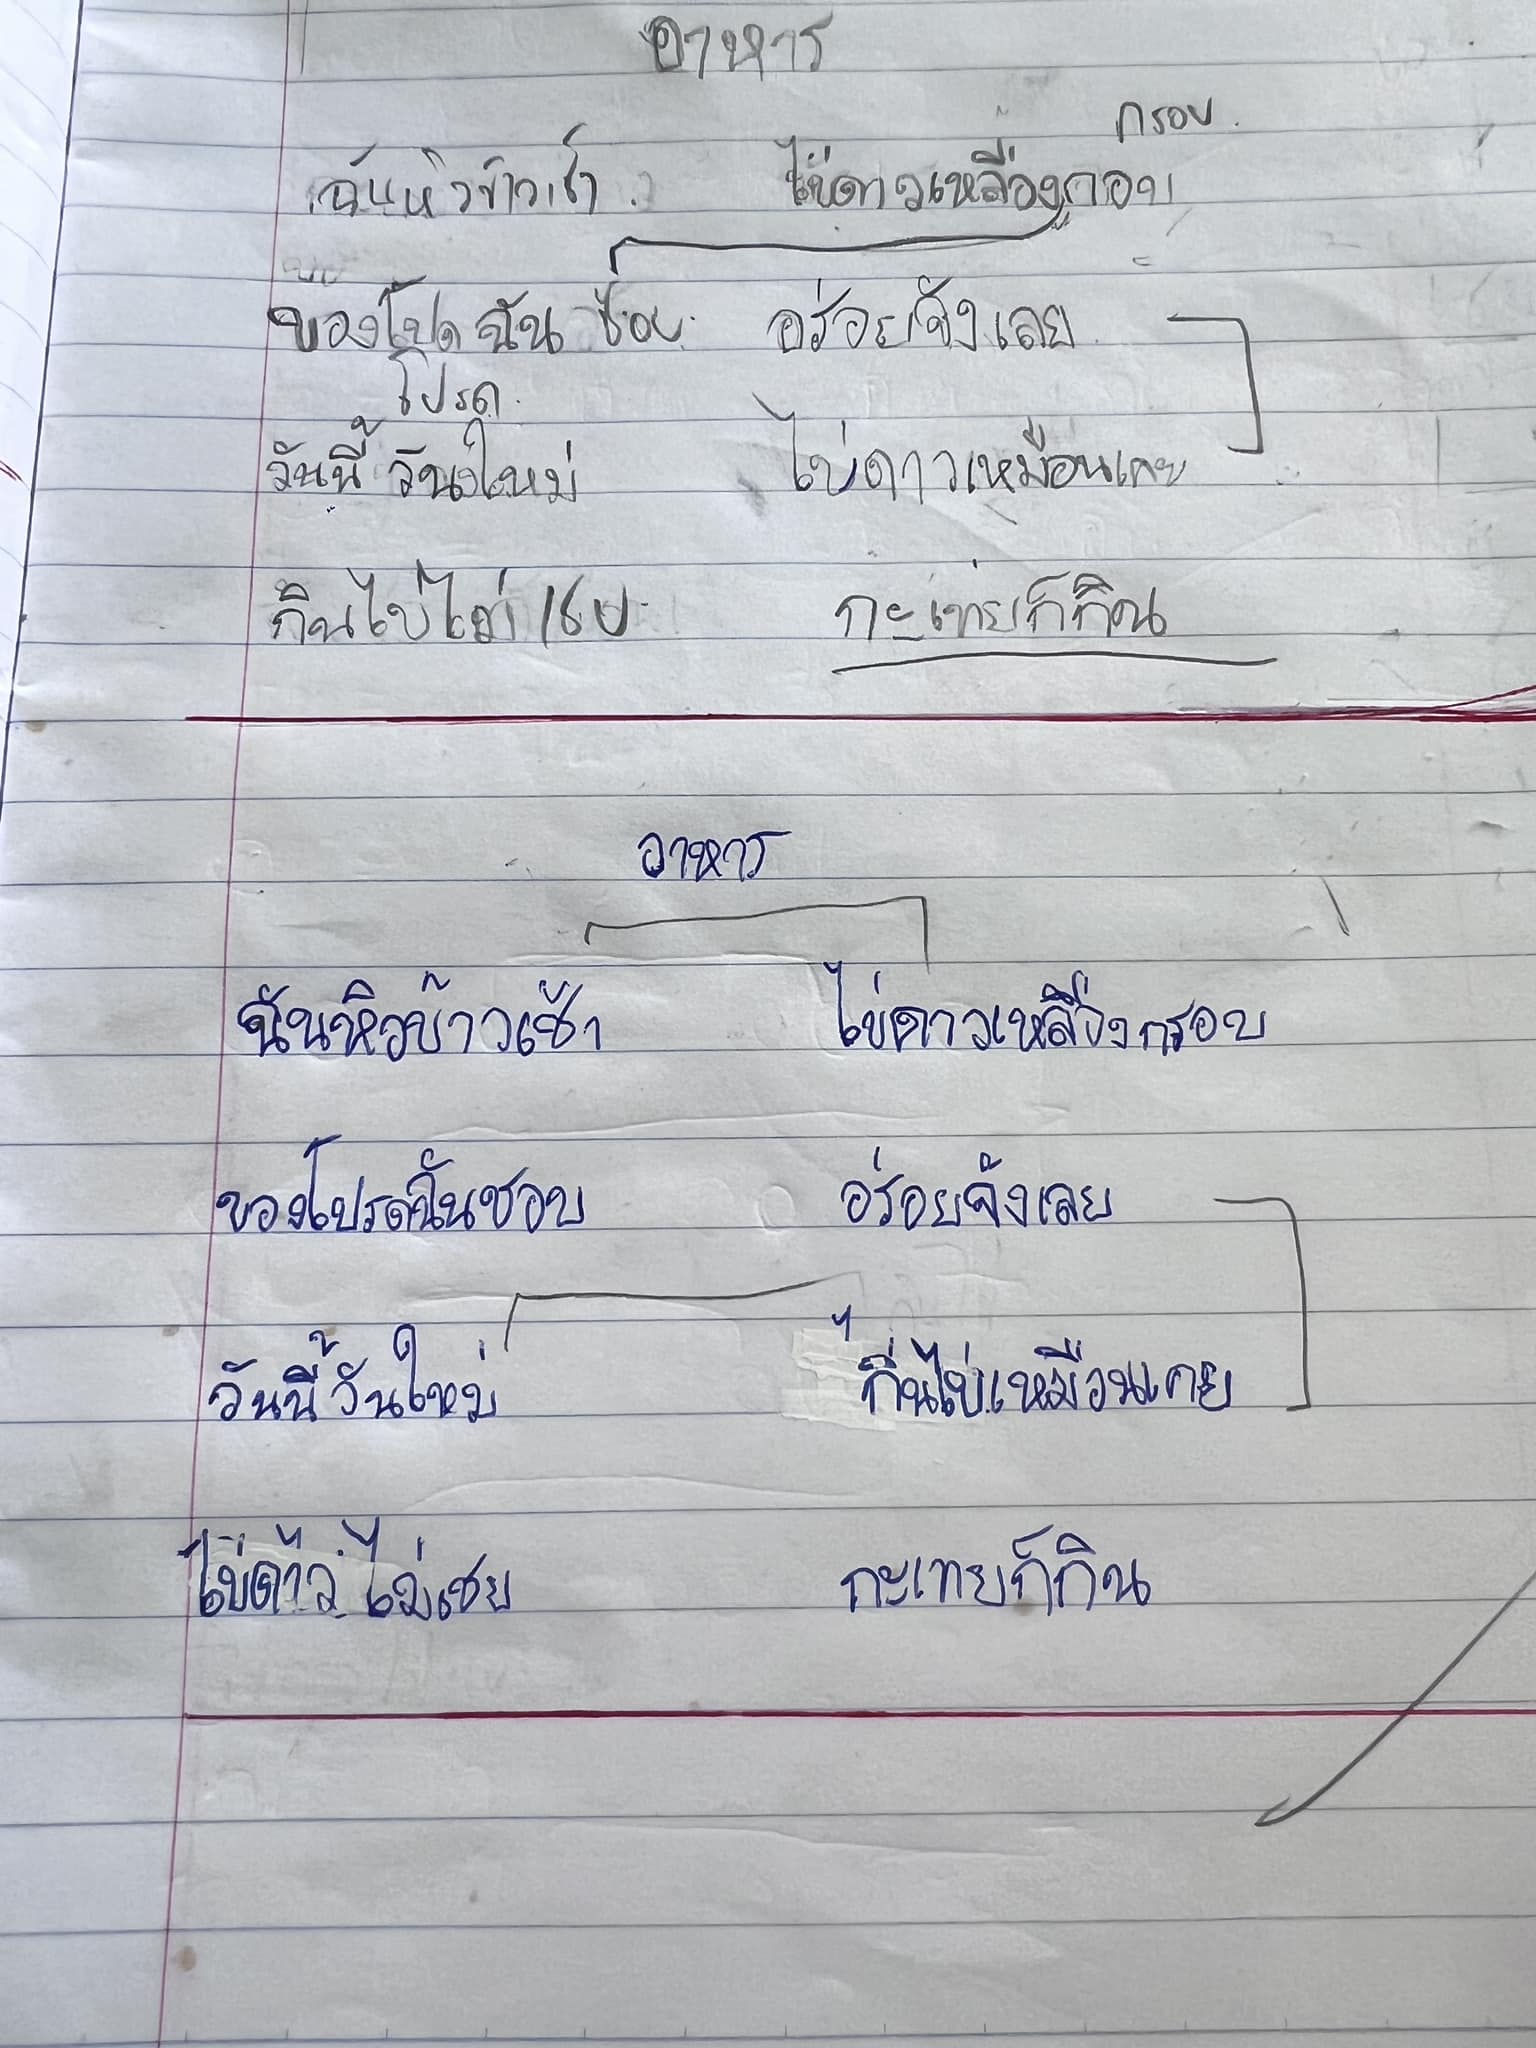 อาหาร
กรอบ
ฉันหิวข้าวเช้า ไข่ดาวเหลืองกอบ
ของโปด ฉัน ช่อบ อร่อยจังเลย
โปรด
วันนี้ วันใหม่ ไข่ดาวเหมือนเคย
กินไข่ไม่เชย กะเทยก็กิน
อาหาร
ฉันหิวข้าวเช้า ไข่ดาวเหลืองกรอบ
ของโปรดฉันชอบ อร่อยจังเลย
วันนี้ วันใหม่ กินไข่เหมือนเคย
ไข่ดาว ไม่เชย กะเทยก็กิน